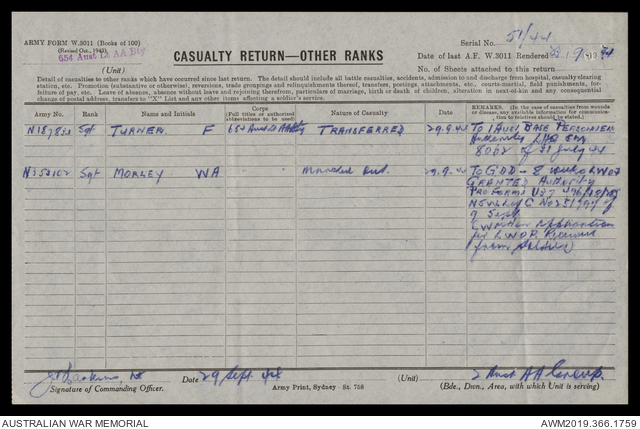 ARMY FORM W.3011 (Books of 100)
(Revised Oct., 1943)
654 Aust AA Bty
(Unit)
CASUALTY RETURN—OTHER RANKS
Serial No. 51/44
Date of last A.F. W.3011 Rendered
No. of Sheets attached to this return
Detail of casualties to other ranks which have occurred since last return. The detail should include all battle casualties, accidents, admission to and discharge from hospital, casualty clearing
station, etc. Promotion (substantive or otherwise), reversions, trade groupings and relinquishments thereof, transfers, postings, attachments, etc. courts-martial, field punishments, for-
feiture of pay, etc. Leave of absence, absence without leave and rejoining therefrom, particulars of marriage, birth or death of children, alteration in next-of-kin and any consequential
change of postal address, transfers to "X" List and any other items affecting a soldier's service.
Army No. Rank Name and Initials Corps (Full titles or authorized abbreviations to be used) Nature of Casualty Date REMARKS. (In the case of casualties from wounds or disease, any available information for communication to relatives should be given)
Sgt TURNER F TRANSFERRED 29.9.44 To 1 Aust BASE
Authority LHQ
8062 of 31 July 44
Sgt MORLEY WA Marched out 29.9.44 To GDD - 8 weeks LWOP
GRANTED Authority
PROFORMA
9 Sept
Written application
for LWOP
from Soldier
Signature of Commanding Officer.
Date 29 Sept 44
Army Print, Sydney St. 758
(Unit) 2 Aust AA Group
(Bde., Dvn., Area, with which Unit is serving)
AUSTRALIAN WAR MEMORIAL
AWM2019.366.1759